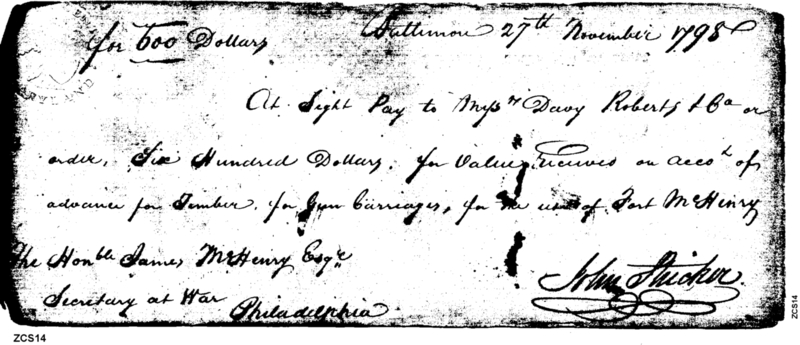 for 600 Dollars Baltimore 27th November 1798
At Sight Pay to Messrs Davy Roberts & Co or
order, Six Hundred Dollars, for Value Received on accot of
advance for Timber, for Gun Carriages, for the use of Fort McHenry
The Honble James McHenry Esqr
Secretary at War
Philadelphia
John Stricker
ARYLAND
ZCS14
ZCS14